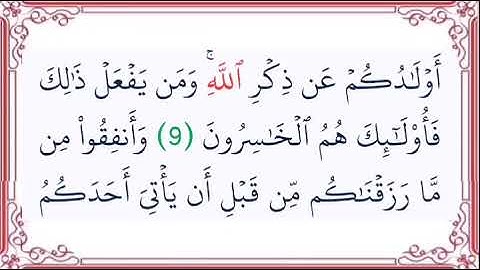 أَوْلَٰدُكُمْ عَن ذِكْرِ ٱللَّهِ ۚ وَمَن يَفْعَلْ ذَٰلِكَ
فَأُوْلَٰٓئِكَ هُمُ ٱلْخَٰسِرُونَ (9) وَأَنفِقُوا۟ مِن
مَّا رَزَقْنَٰكُم مِّن قَبْلِ أَن يَأْتِىَ أَحَدَكُمُ